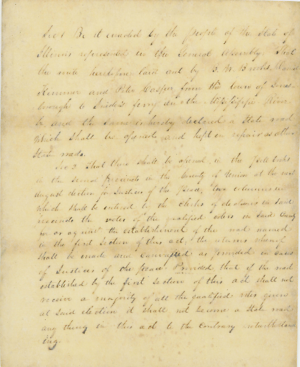 Sec 1 Be it enacted by the People of the State of
Illinois represented in the General Assembly That
the road heretofore laid out by
and from the town of
to ferry on the Mississippi River
be and the same is hereby declared a State road
which shall be opened and kept in repair as other
State roads.
Sec 2 That there shall be opened in the poll books
in the several Precincts in the County of Union at the next
August election for Justices of the Peace, two columns in
which shall be entered by the Clerks of elections in said
precincts the votes of the qualified voters in said County
for or against the establishment of the road named
in the first section of this act, the returns whereof
shall be made and canvassed as provided in cases
of Justices of the Peace Provided that if the road
established by the first section of this act shall not
receive a majority of all the qualified votes given
at said election it shall not become a State road
any thing in this act to the contrary notwithstand
ing.